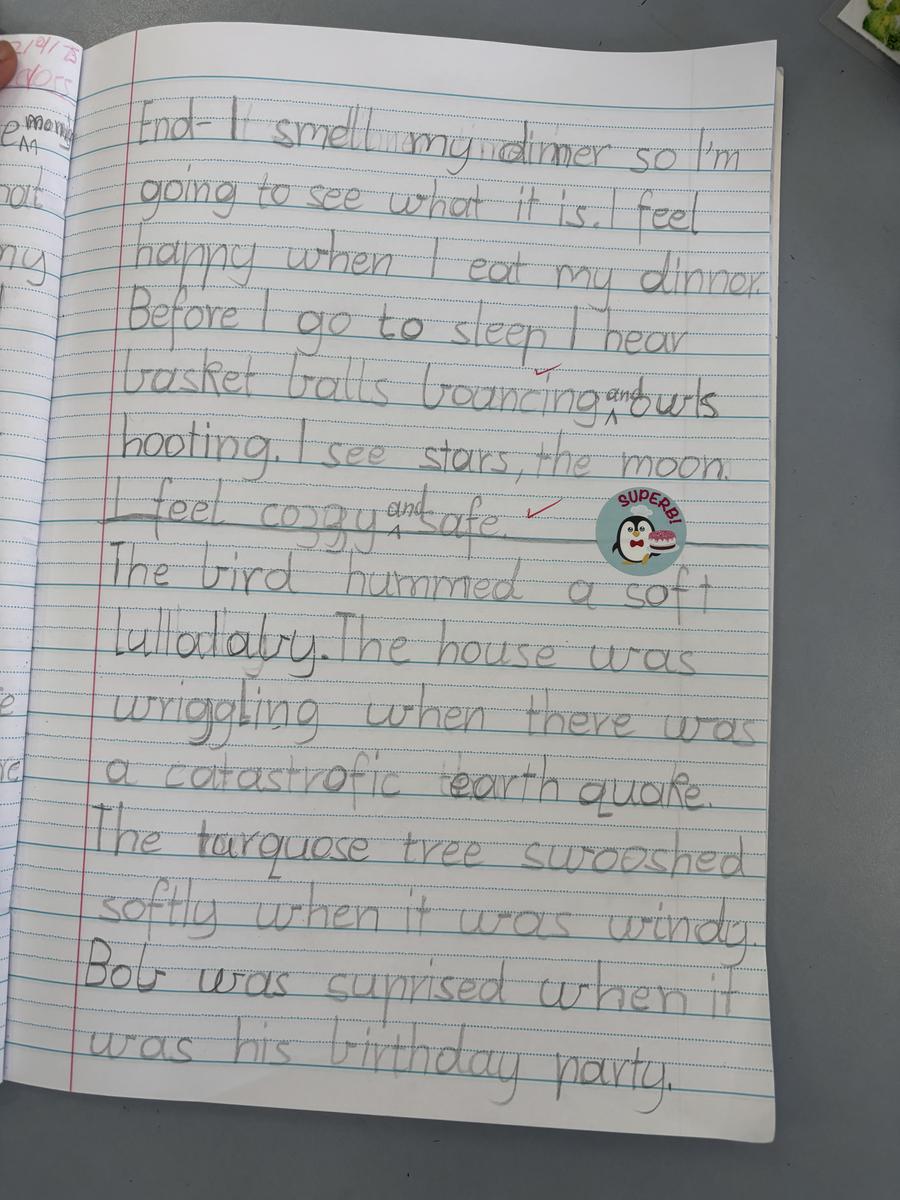 2/9/25
End- I smell my dinner so I'm
going to see what it is. I feel
happy when I eat my dinner.
Before I go to sleep I hear
basket balls bouncing and owls
hooting. I see stars, the moon.
I feel cozzy and safe.
SUPERB!
The bird hummed a soft
lulladaby. The house was
wriggling when there was
a catastrofic earth quake.
The tarquose tree swooshed
softly when it was windy.
Bob was suprised when it
was his birthday party.